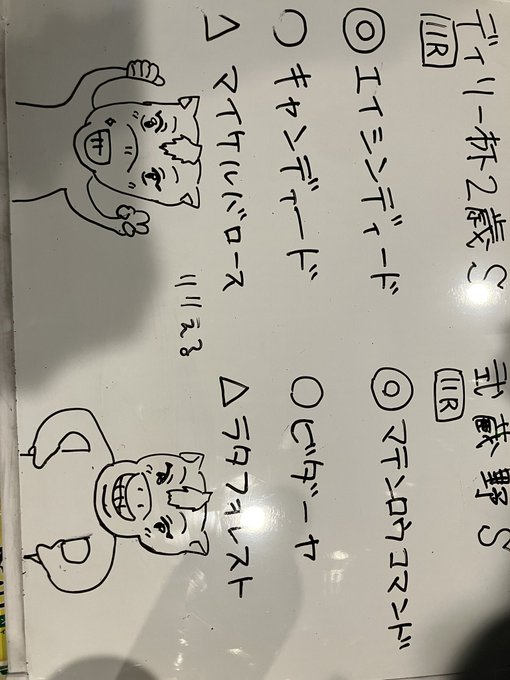 ディリー杯2歳S
11R
◎エイシンディード
○キャンディード
△マイケルバロース
武蔵野S
11R
◎マテンロウコマンド
○ビダーヤ
△ラタフォレスト